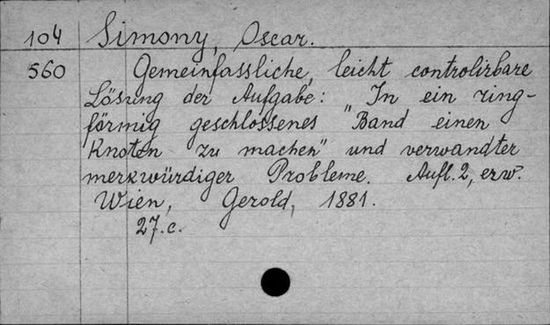 104 Simony, Oscar.
560 Gemeinfassliche, leicht controlirbare
Lösung der Aufgabe: "In ein ring-
förmig geschlossenes Band einen
Knoten zu machen" und verwandter
merkwürdiger Probleme. Aufl. 2, erw.
Wien, Gerold, 1881.
27.c.